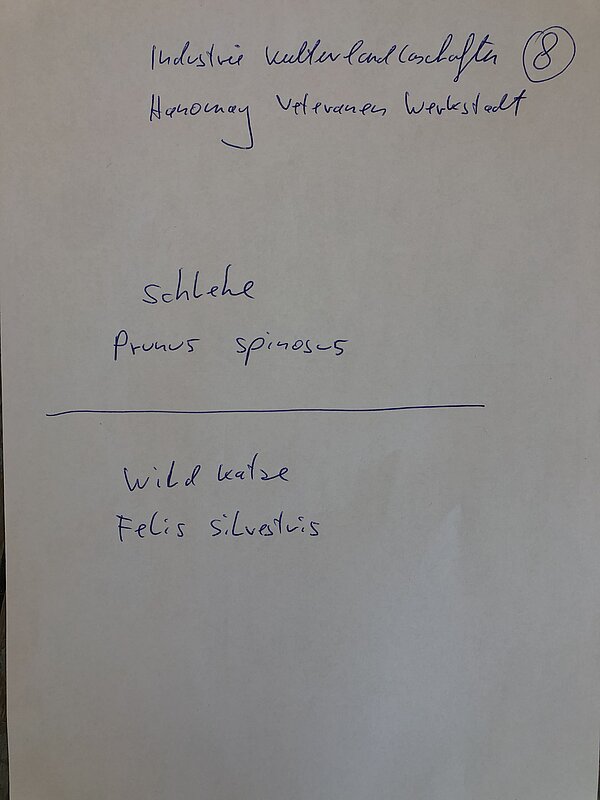 Industrie Kulturlandschaften 8
Hanomag Veteranen Werkstadt
Schlehe
Prunus spinosus
Wild katze
Felis silvestris